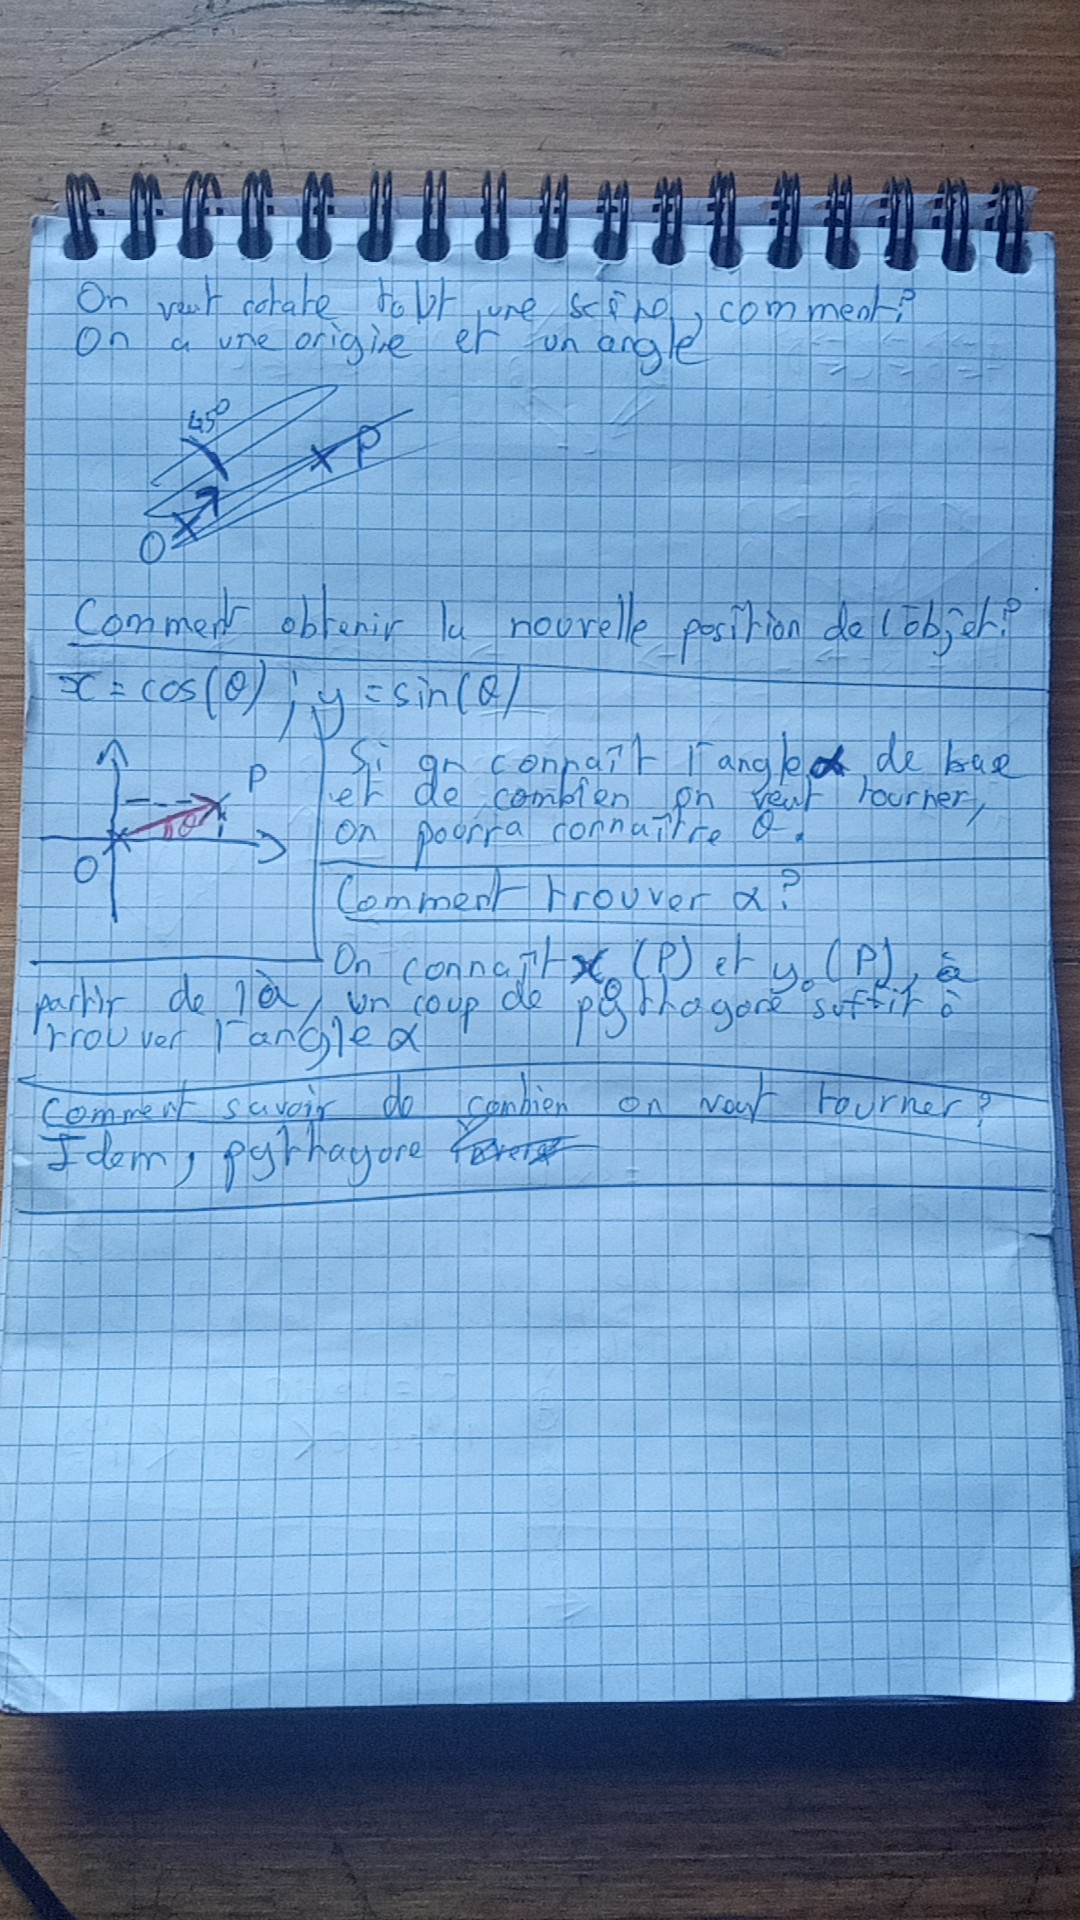 On veut rotate tout une scène, comment?
On a une origine et un angle
45°
P
O
Comment obtenir la nouvelle position de l'objet?
x = cos(θ) ; y = sin(θ)
P
θ
O
Si on connaît l'angle α de base
et de combien on veut tourner,
on pourra connaître θ.
Comment trouver α?
On connaît x₀(P) et y₀(P), à
partir de là, un coup de pythagore suffit à
trouver l'angle α
Comment savoir de combien on veut tourner?
Idem, pythagore